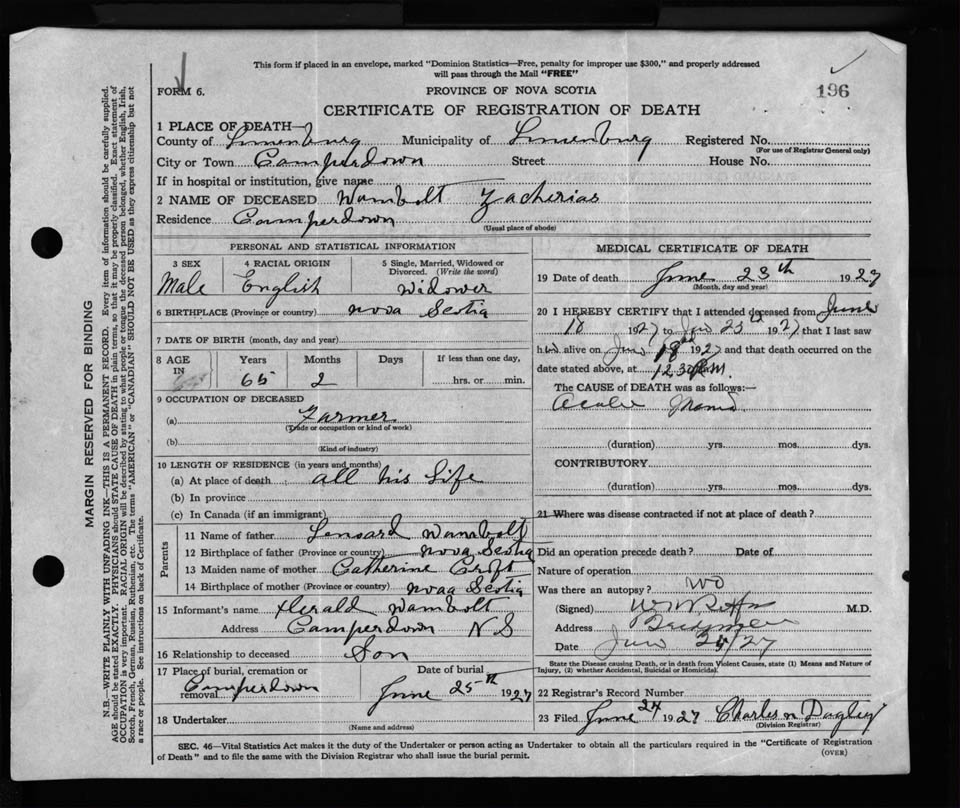 This form if placed in an envelope, marked "Dominion Statistics—Free, penalty for improper use $300," and properly addressed
will pass through the Mail "FREE"
FORM 6.
PROVINCE OF NOVA SCOTIA
196
CERTIFICATE OF REGISTRATION OF DEATH
1 PLACE OF DEATH—
County of Lunenburg Municipality of Lunenburg Registered No.
(For use of Registrar General only)
City or Town Camperdown Street House No.
If in hospital or institution, give name
2 NAME OF DECEASED Wambolt Zacherias
Residence Camperdown
(Usual place of abode)
PERSONAL AND STATISTICAL INFORMATION
3 SEX 4 RACIAL ORIGIN 5 Single, Married, Widowed or Divorced. (Write the word)
Male English Widower
6 BIRTHPLACE (Province or country) Nova Scotia
7 DATE OF BIRTH (month, day and year)
8 AGE IN Years Months Days If less than one day,
65 2 hrs. or min.
9 OCCUPATION OF DECEASED
(a) Farmer
(Trade or occupation or kind of work)
(b)
(Kind of industry)
10 LENGTH OF RESIDENCE (in years and months)
(a) At place of death all his life
(b) In province
(c) In Canada (if an immigrant)
Parents
11 Name of father Lenoard Wambolt
12 Birthplace of father (Province or country) Nova Scotia
13 Maiden name of mother Catherine Croft
14 Birthplace of mother (Province or country) Nova Scotia
15 Informant's name Herald Wambolt
Address Camperdown N S
16 Relationship to deceased Son
17 Place of burial, cremation or removal Camperdown
Date of burial June 25th 1927
18 Undertaker
(Name and address)
MEDICAL CERTIFICATE OF DEATH
19 Date of death June 23th 1927
(Month, day and year)
20 I HEREBY CERTIFY that I attended deceased from June
18 1927 to June 23rd 1927 that I last saw
him alive on June 18 1927 and that death occurred on the
date stated above, at 12.30 P.M.
The CAUSE OF DEATH was as follows:—
(duration) yrs. mos. dys.
CONTRIBUTORY
(duration) yrs. mos. dys.
21 Where was disease contracted if not at place of death?
Did an operation precede death? Date of
Nature of operation
Was there an autopsy? No
(Signed) M.D.
Address
Date June 24/27
State the Disease causing Death, or in death from Violent Causes, state (1) Means and Nature of
Injury, (2) whether Accidental, Suicidal or Homicidal.
22 Registrar's Record Number
23 Filed June 24 1927 Charles N Dagley
(Division Registrar)
SEC. 46—Vital Statistics Act makes it the duty of the Undertaker or person acting as Undertaker to obtain all the particulars required in the "Certificate of Registration
of Death" and to file the same with the Division Registrar who shall issue the burial permit.
(OVER)
MARGIN RESERVED FOR BINDING
N.B.—WRITE PLAINLY WITH UNFADING INK—THIS IS A PERMANENT RECORD. Every item of information should be carefully supplied.
AGE should be stated EXACTLY. PHYSICIANS should STATE CAUSE OF DEATH in plain terms, so that it may be properly classified. Exact statement of
OCCUPATION is very important. RACIAL ORIGIN will be described by stating to what people or tongue the deceased person belonged, whether English, Irish,
Scotch, French, German, Russian, Ruthenian, etc. The terms "AMERICAN" or "CANADIAN" SHOULD NOT BE USED as they express citizenship but not
a race or people. See instructions on back of Certificate.